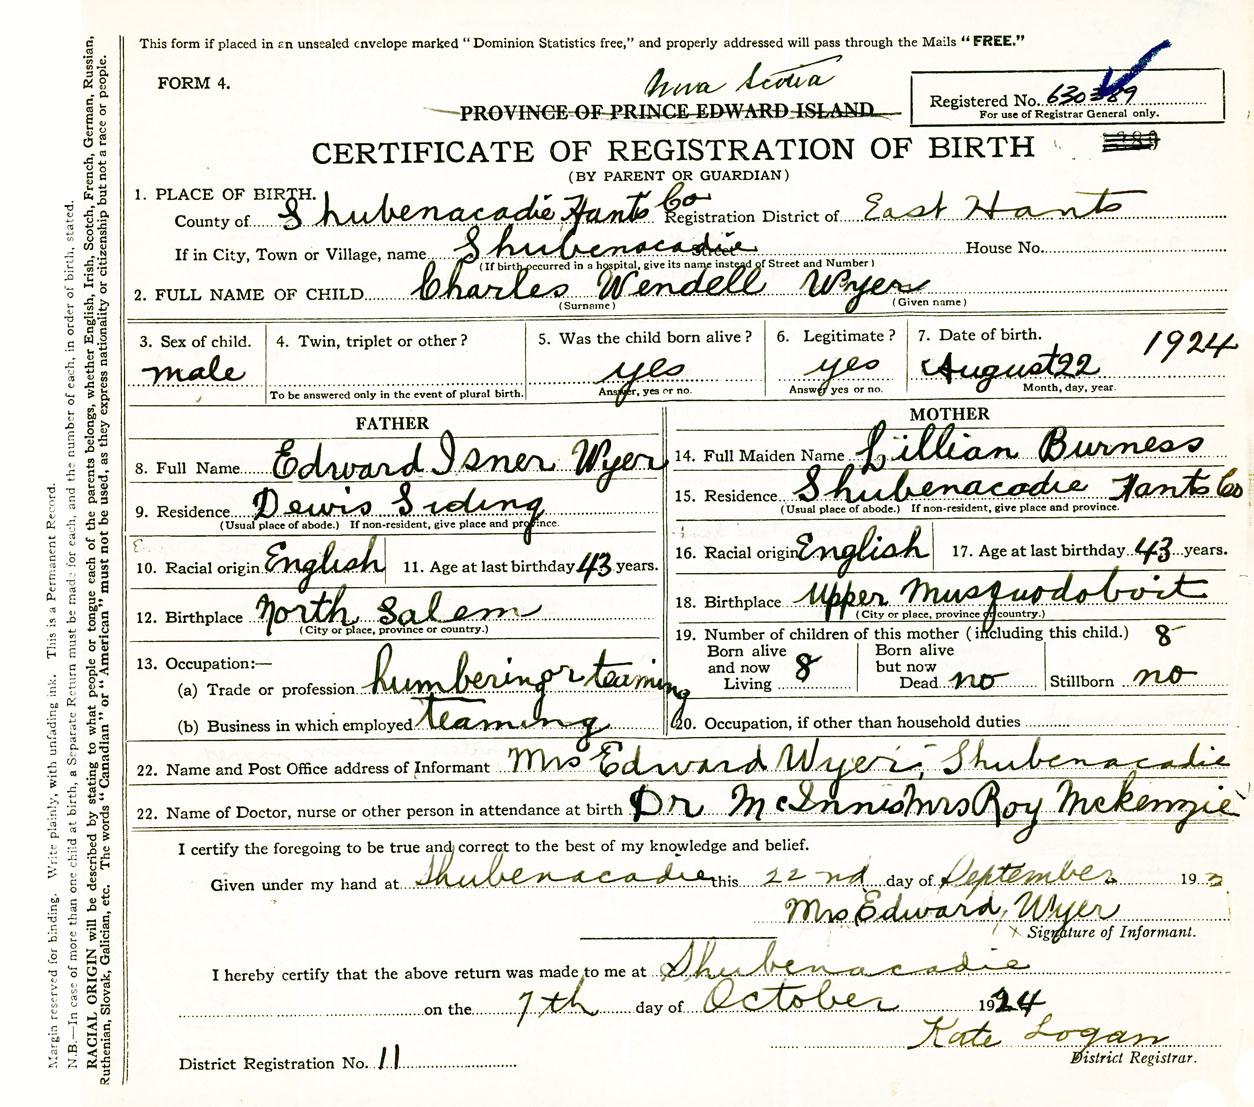 This form if placed in an unsealed envelope marked “Dominion Statistics free,” and properly addressed will pass through the Mails “FREE.”
FORM 4.
Nova Scotia
PROVINCE OF PRINCE EDWARD ISLAND
Registered No. 630389
For use of Registrar General only.
CERTIFICATE OF REGISTRATION OF BIRTH
(BY PARENT OR GUARDIAN)
1. PLACE OF BIRTH.
County of Shubenacadie Hants Co Registration District of East Hants
If in City, Town or Village, name Shubenacadie Street House No.
(If birth occurred in a hospital, give its name instead of Street and Number)
2. FULL NAME OF CHILD Charles Wendell Wyer
(Surname) (Given name)
3. Sex of child. 4. Twin, triplet or other? 5. Was the child born alive? 6. Legitimate? 7. Date of birth. 1924
male yes yes August 22
To be answered only in the event of plural birth. Answer, yes or no. Answer yes or no. Month, day, year.
FATHER
8. Full Name Edward Isner Wyer
9. Residence Dewis Siding
(Usual place of abode.) If non-resident, give place and province.
10. Racial origin English 11. Age at last birthday 43 years.
12. Birthplace North Salem
(City or place, province or country.)
13. Occupation:—
(a) Trade or profession lumbering or teaming
(b) Business in which employed teaming
MOTHER
14. Full Maiden Name Lillian Burness
15. Residence Shubenacadie Hants Co
(Usual place of abode.) If non-resident, give place and province.
16. Racial origin English 17. Age at last birthday 43 years.
18. Birthplace Upper Musquodoboit
(City or place, province or country.)
19. Number of children of this mother (including this child.) 8
Born alive and now Living 8 Born alive but now Dead no Stillborn no
20. Occupation, if other than household duties
22. Name and Post Office address of Informant Mrs Edward Wyer, Shubenacadie
22. Name of Doctor, nurse or other person in attendance at birth Dr McInnis Mrs Roy McKenzie
I certify the foregoing to be true and correct to the best of my knowledge and belief.
Given under my hand at Shubenacadie this 22nd day of September 192
Mrs Edward Wyer
Signature of Informant.
I hereby certify that the above return was made to me at Shubenacadie
on the 7th day of October 1924
Kate Logan
District Registrar.
District Registration No. 11
Margin reserved for binding. Write plainly, with unfading ink. This is a Permanent Record.
N.B.—In case of more than one child at birth, a Separate Return must be made for each, and the number of each, in order of birth, stated.
RACIAL ORIGIN will be described by stating to what people or tongue each of the parents belongs, whether English, Irish, Scotch, French, German, Russian,
Ruthenian, Slovak, Galician, etc. The words “Canadian” or “American” must not be used, as they express nationality or citizenship but not a race or people.